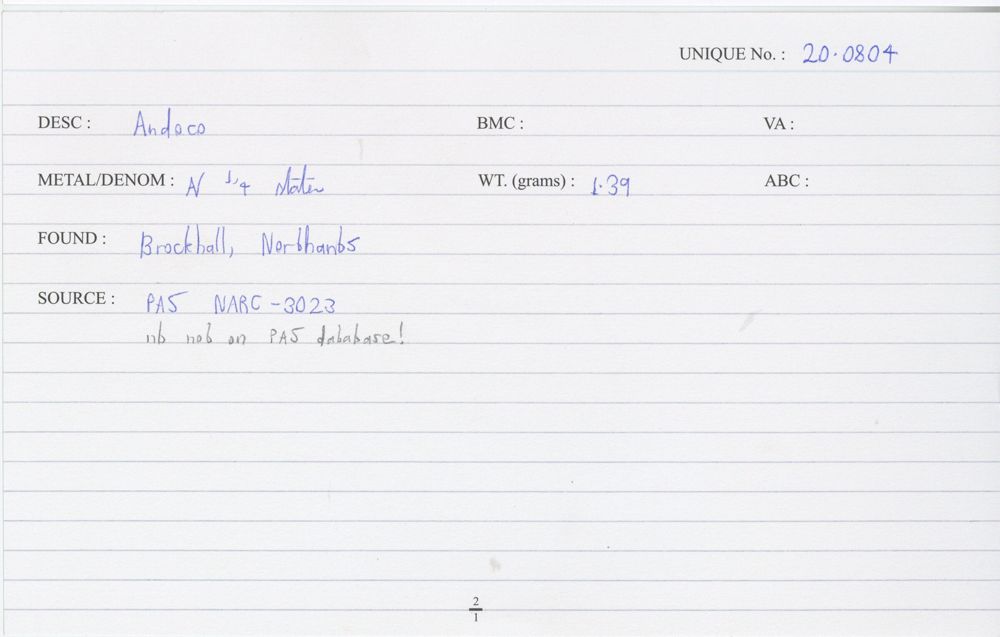 UNIQUE No. : 20.0804
DESC : Andoco BMC : VA :
METAL/DENOM : N 1/4 Stater WT. (grams) : 1.39 ABC :
FOUND : Brockhall, Northants
SOURCE : PAS NARC-3023
nb not on PAS database!
2
1